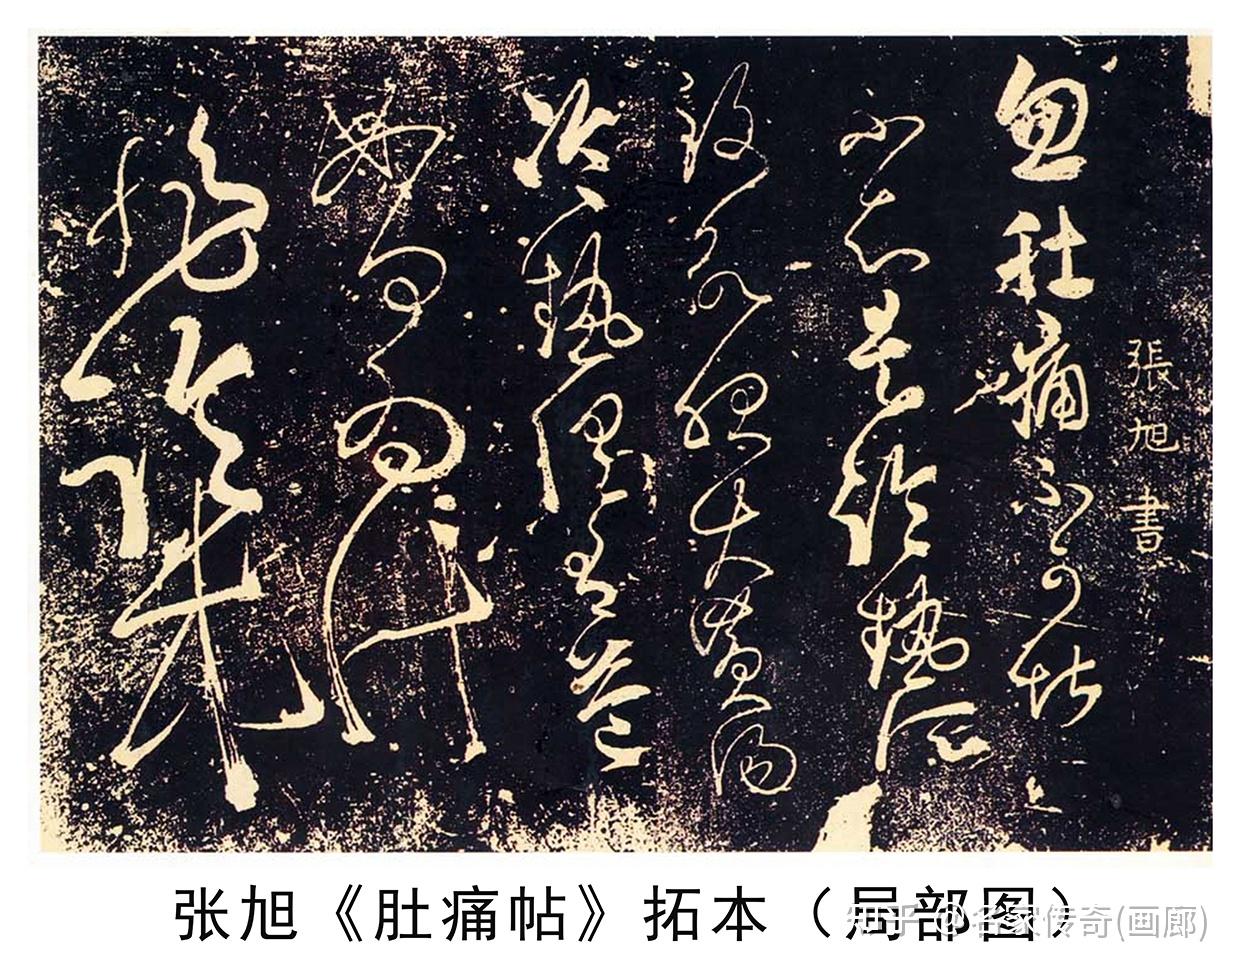 張旭書
忽肚痛不可堪
不知是冷熱所
致欲服大黃湯
冷熱俱有益
如何為計
张旭《肚痛帖》拓本（局部图）
知乎 @名家传奇(画廊)